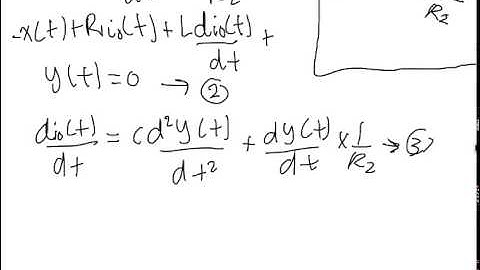 R2
-x(t)+R1io(t)+Ldio(t)/dt+
y(t)=0 → ②
dio(t)/dt = cd²y(t)/dt² + dy(t)/dt × 1/R2 → ③